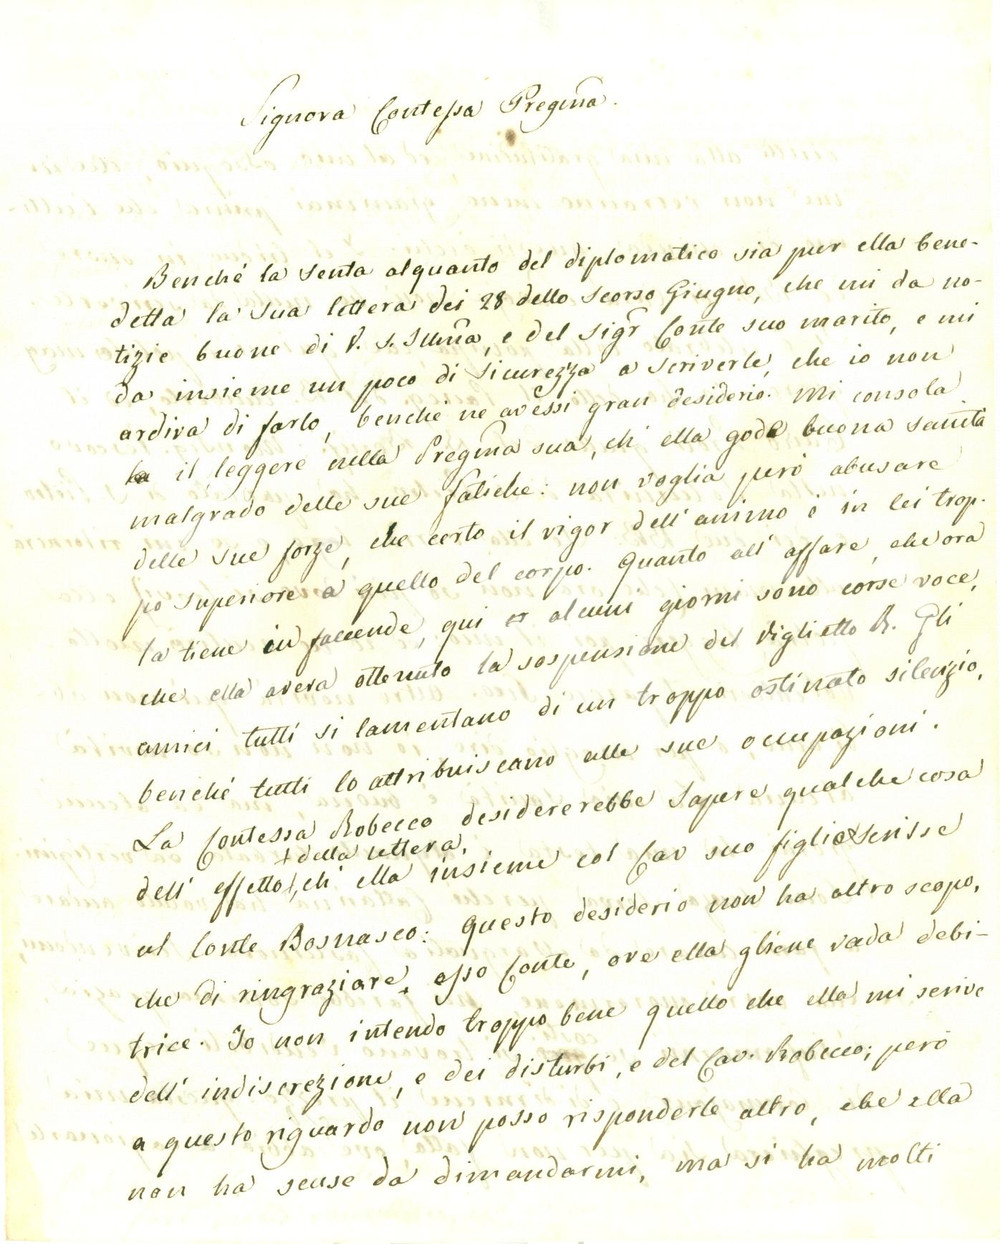 Signora Contessa Pregma.
Benché la senta alquanto del diplomatico sia pur ella bene-
detta la sua lettera dei 28 dello scorso Giugno, che mi da no-
tizie buone di V. S. Illma, e del Sigr Conte suo marito, e mi
da insieme un poco di sicurezza a scriverle, che io non
ardiva di farlo, benché ne avessi gran desiderio. Mi consola
il leggere nella Pregma sua, ch' ella gode buona sanità
malgrado delle sue fatiche: non voglia però abusare
delle sue forze, che certo il vigor dell' animo è in lei trop-
po superiore a quello del corpo. Quanto all' affare, che ora
la tiene in faccende, qui alcuni giorni sono corse voce,
che ella aveva ottenuto la sospensione del Viglietto R. Gli
amici tutti si lamentano di un troppo ostinato silenzio,
benché tutti lo attribuiscano alle sue occupazioni.
La Contessa Robecco desidererebbe sapere qualche cosa
+ della lettera,
dell' effetto +, ch' ella insieme col Cav suo figlio scrisse
al Conte Bosnasco: questo desiderio non ha altro scopo,
che di ringraziare esso Conte, ove ella gliene vada debi-
trice. Io non intendo troppo bene quello che ella mi scrive
dell' indiscrezione, e dei disturbi, e del Cav. Robecco; però
a questo riguardo non posso risponderle altro, che ella
non ha scuse da dimandarmi, ma si ha molti